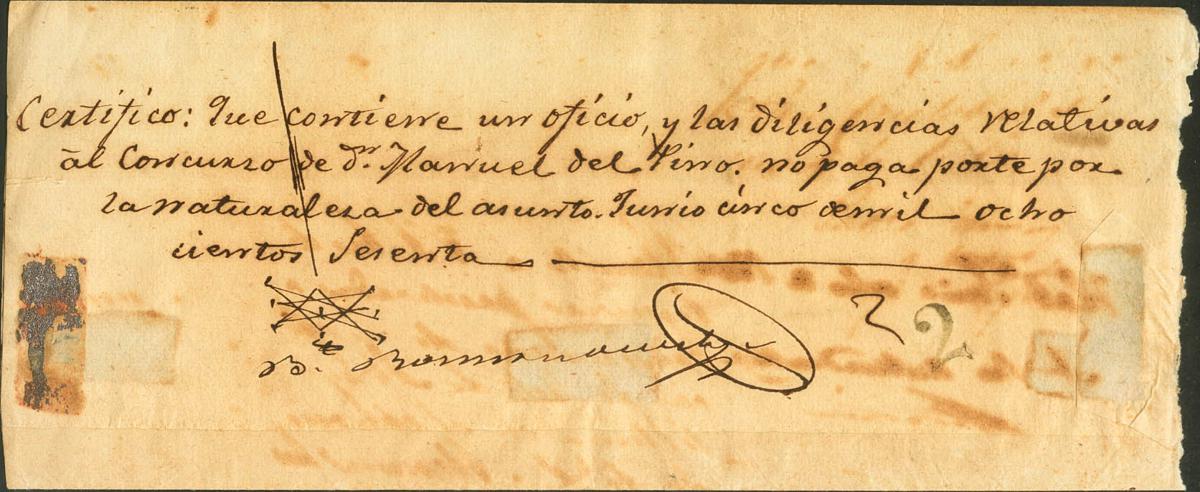 Certifico: Que contiene un oficio, y las diligencias relativas
ál Concurzo de dn. Manuel del Pino. no paga porte por
la naturaleza del asunto. Junio cinco de mil ocho
cientos Sesenta
Bte.
2
2